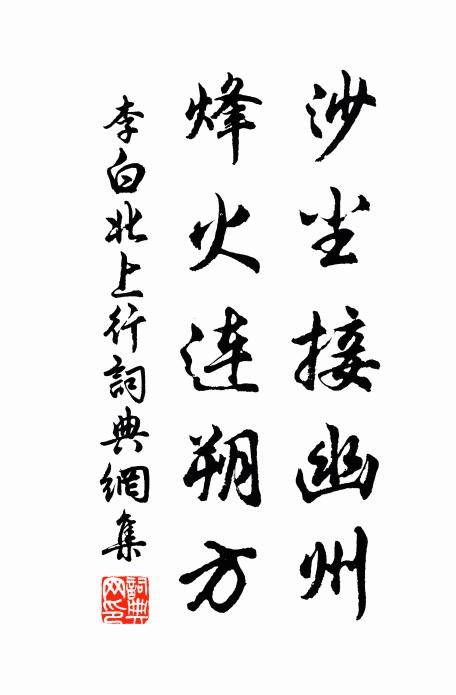 沙尘接幽州
烽火连朔方
李白北上行詞典網集
詞典網印